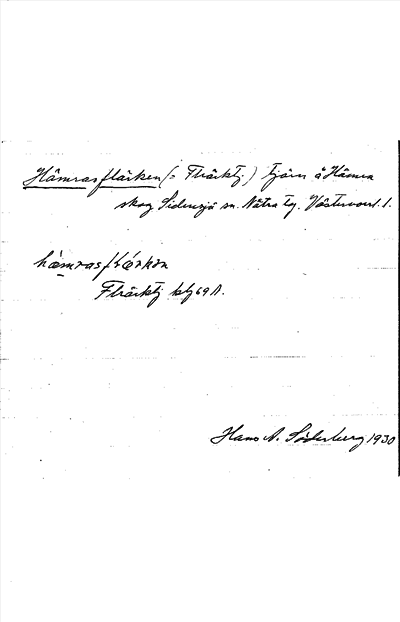 Hämrasflärken (= Flärktj.) tjärn å Hämra
skog Sidensjö sn. Nätra tg. Västernorrl. l.
hämrasflärkən
Flärktj kbl 69 A.
Hans A. Söderberg 1930